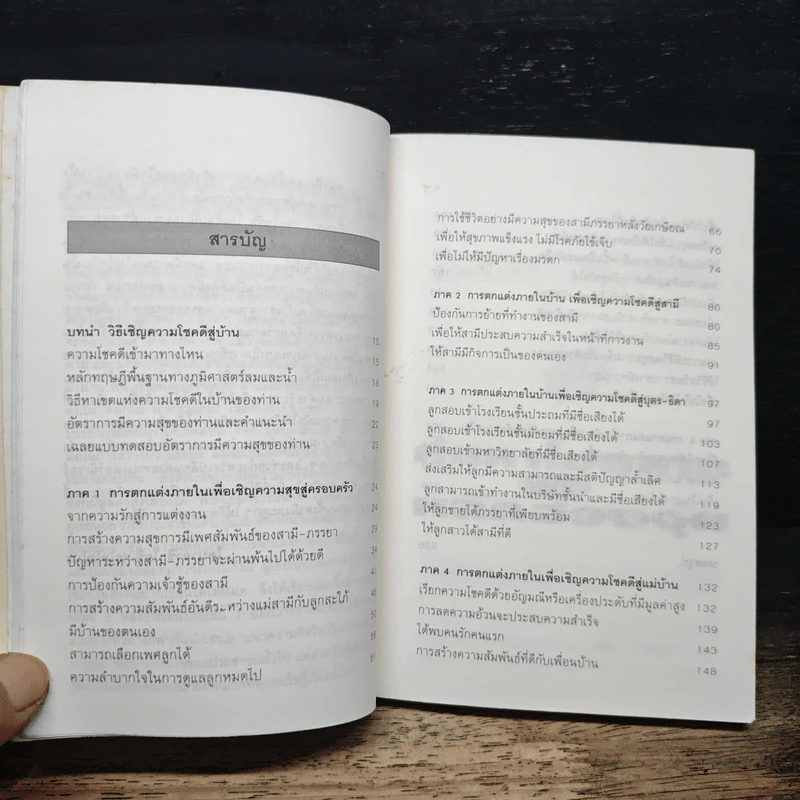 สารบัญ
บทนำ วิธีเชิญความโชคดีสู่บ้าน 15
ความโชคดีเข้ามาทางไหน 15
หลักทฤษฎีพื้นฐานทางภูมิศาสตร์ลมและน้ำ 18
วิธีหาเขตแห่งความโชคดีในบ้านของท่าน 19
อัตราการมีความสุขของท่านและคำแนะนำ 22
เฉลยแบบทดสอบอัตราการมีความสุขของท่าน 23
ภาค 1 การตกแต่งภายในเพื่อเชิญความสุขสู่ครอบครัว 24
จากความรักสู่การแต่งงาน 24
การสร้างความสุขการมีเพศสัมพันธ์ของสามี-ภรรยา 29
ปัญหาระหว่างสามี-ภรรยาจะผ่านพ้นไปได้ด้วยดี 34
การป้องกันความเจ้าชู้ของสามี 41
การสร้างความสัมพันธ์อันดีระหว่างแม่สามีกับลูกสะใภ้ 46
มีบ้านของตนเอง 50
สามารถเลือกเพศลูกได้ 56
ความลำบากใจในการดูแลลูกหมดไป 61
การใช้ชีวิตอย่างมีความสุขของสามีภรรยาหลังวัยเกษียณ 66
เพื่อให้สุขภาพแข็งแรง ไม่มีโรคภัยไข้เจ็บ 70
เพื่อไม่ให้มีปัญหาเรื่องมรดก 74
ภาค 2 การตกแต่งภายในบ้าน เพื่อเชิญความโชคดีสู่สามี 80
ป้องกันการย้ายที่ทำงานของสามี 80
เพื่อให้สามีประสบความสำเร็จในหน้าที่การงาน 85
ให้สามีมีกิจการเป็นของตนเอง 91
ภาค 3 การตกแต่งภายในบ้านเพื่อเชิญความโชคดีสู่บุตร-ธิดา 97
ลูกสอบเข้าโรงเรียนชั้นประถมที่มีชื่อเสียงได้ 97
ลูกสอบเข้าโรงเรียนชั้นมัธยมที่มีชื่อเสียงได้ 103
ลูกสอบเข้ามหาวิทยาลัยที่มีชื่อเสียงได้ 107
ส่งเสริมให้ลูกมีความสามารถและมีสติปัญญาล้ำเลิศ 113
ลูกสามารถเข้าทำงานในบริษัทชั้นนำและมีชื่อเสียงได้ 119
ให้ลูกชายได้ภรรยาที่เพียบพร้อม 123
ให้ลูกสาวได้สามีที่ดี 127
ภาค 4 การตกแต่งภายในเพื่อเชิญความโชคดีสู่แม่บ้าน 132
เรียกความโชคดีด้วยอัญมณีหรือเครื่องประดับที่มีมูลค่าสูง 132
การลดความอ้วนจะประสบความสำเร็จ 139
ได้พบคนรักคนแรก 143
การสร้างความสัมพันธ์ที่ดีกับเพื่อนบ้าน 148